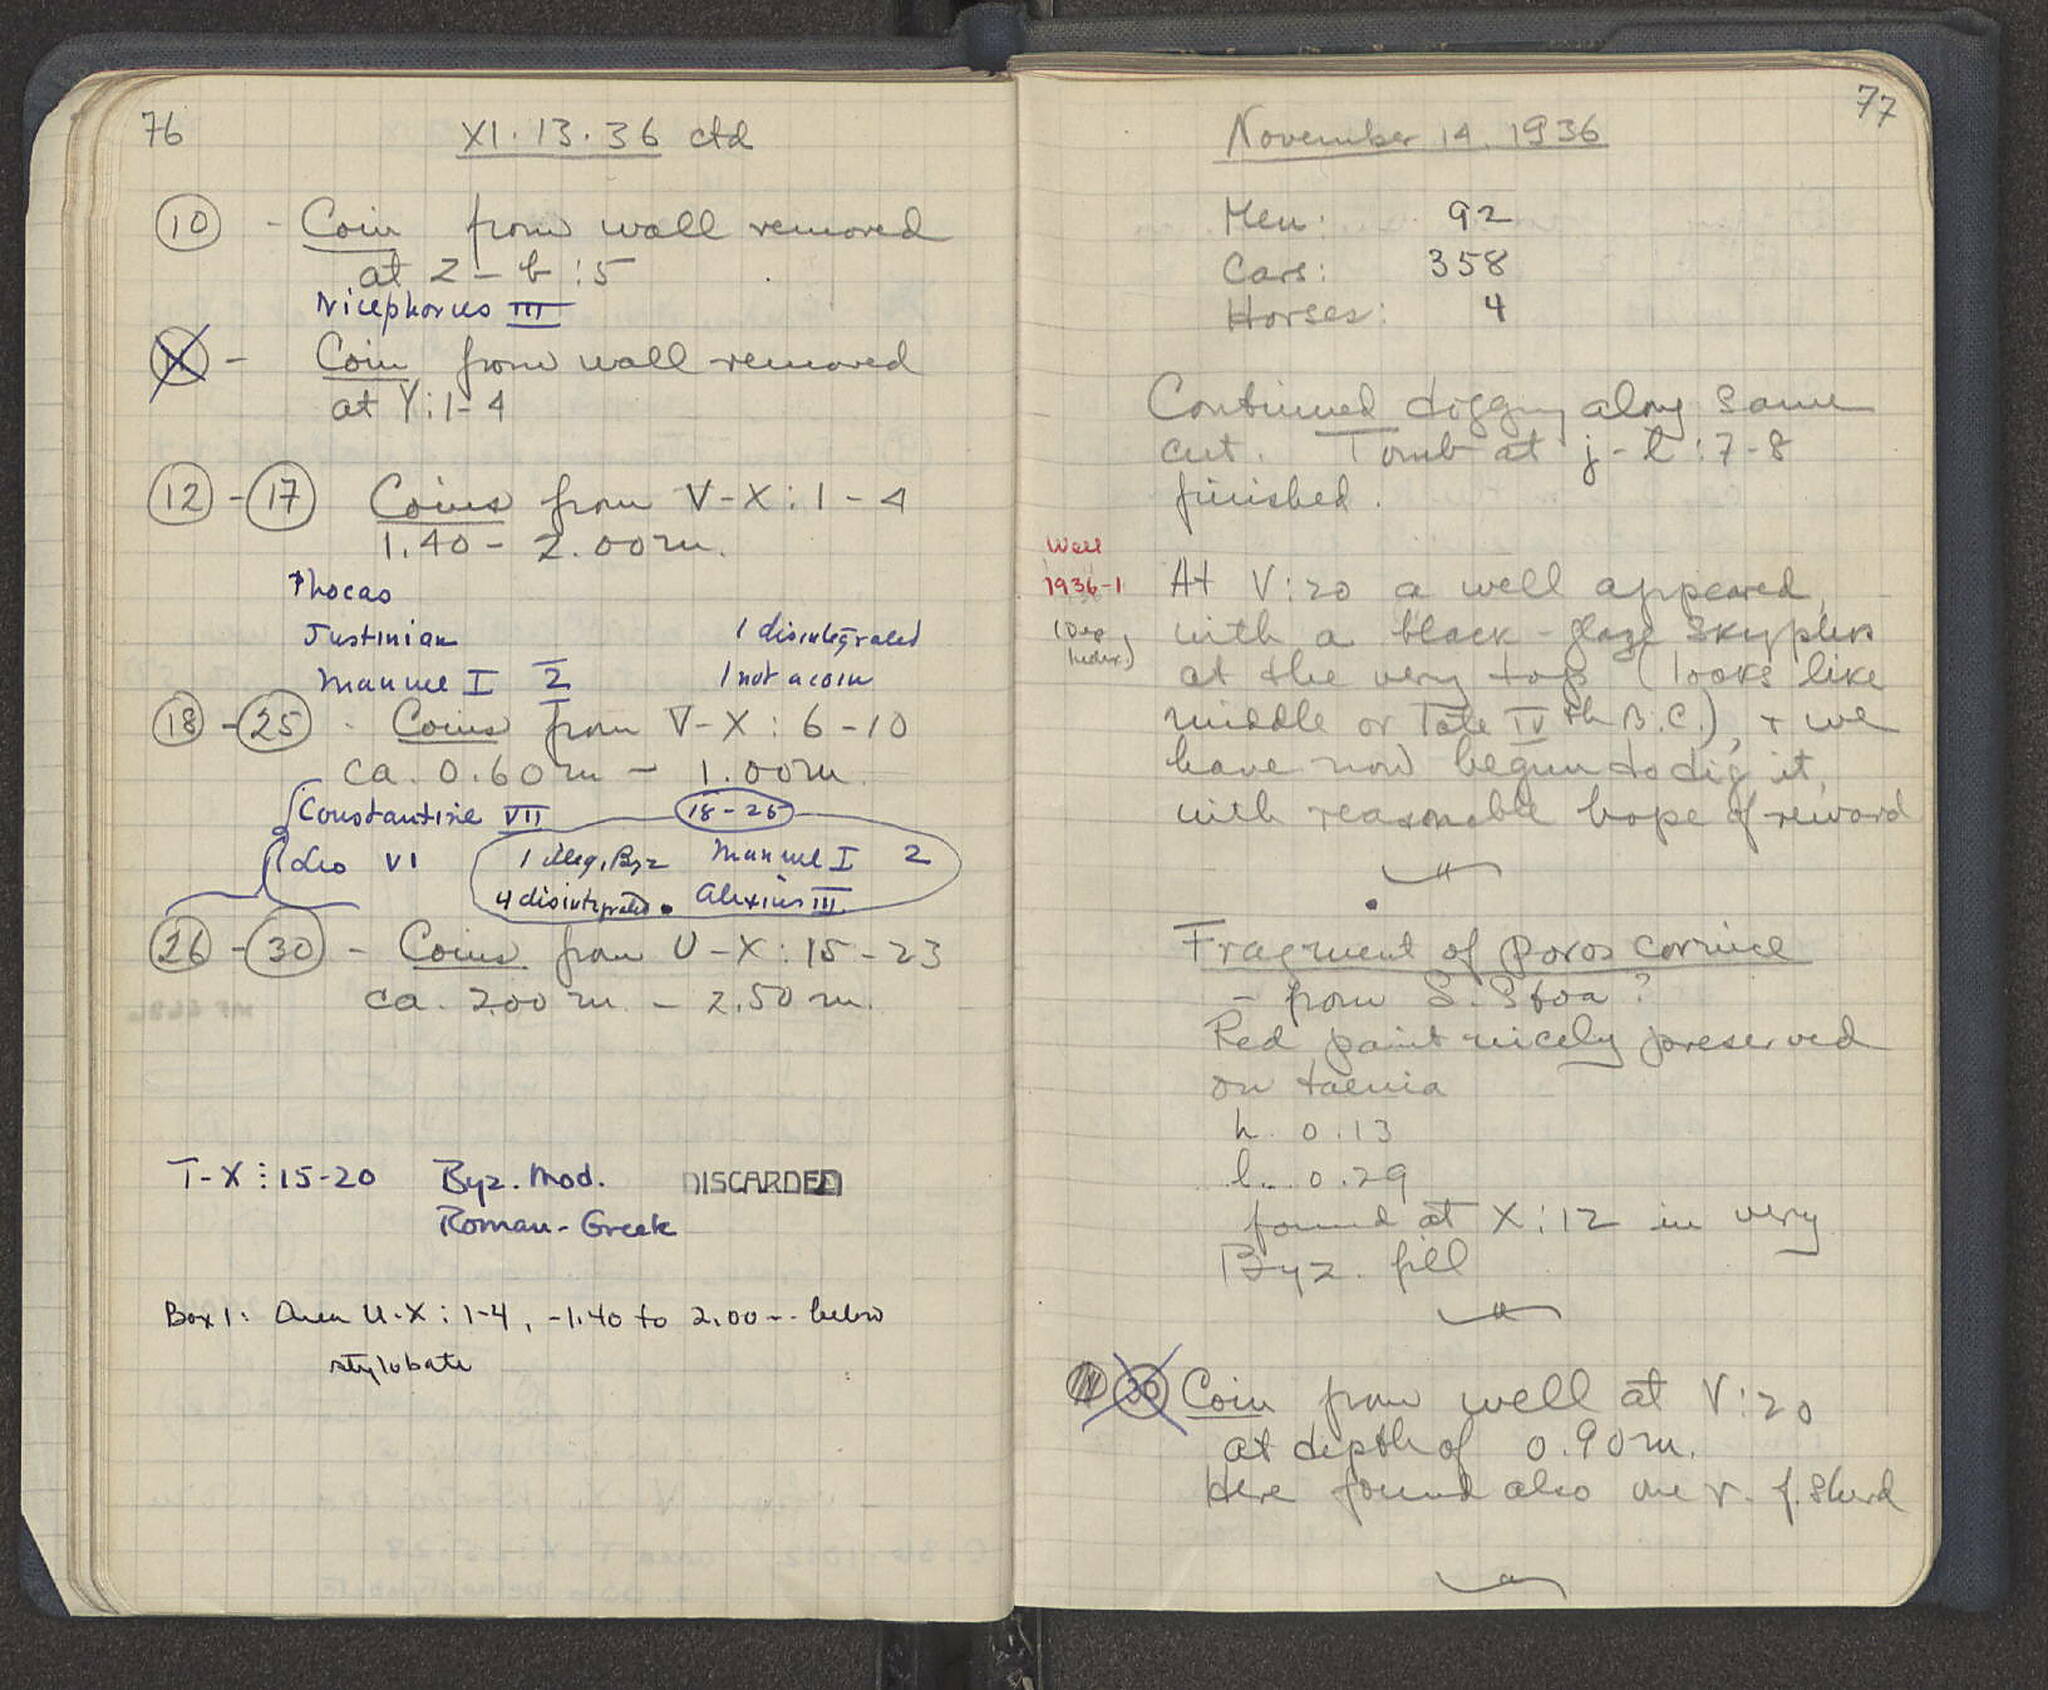 76
XI.13.36 ctd
10 - Coin from wall removed
at Z-b:5
Nicephorus III
- Coin from wall removed
at Y:1-4
12 - 17 Coins from V-X:1-4
1.40 - 2.00 m.
Phocas
Justinian 1 disintegrated
Manuel I 2 1 not a coin
18 - 25 - Coins from V-X:6-10
ca. 0.60 m - 1.00 m.
Constantine VII 18-25
Leo VI 1 illeg. Byz Manuel I 2
4 disintegrated. Alexius III
26 - 30 - Coins from U-X:15-23
ca. 2.00 m - 2.50 m.
T-X:15-20 Byz. Mod. DISCARDED
Roman-Greek
Box 1: Area U-X:1-4, -1.40 to 2.00 -- below
stylobate
77
November 14, 1936
Men: 92
Cars: 358
Horses: 4
Continued digging along same
cut. Tomb at j-l:7-8
finished.
Well
1936-1 At V:20 a well appeared,
with a black-glaze skyphos
at the very top (looks like
middle or late IVth B.C.), + we
have now begun to dig it,
with reasonable hope of reward
Fragment of poros cornice
- from S. Stoa?
Red paint nicely preserved
on taenia
h. 0.13
l. 0.29
found at X:12 in very
Byz. fill
30 Coin from well at V:20
at depth of 0.90 m.
Here found also one r.f. sherd